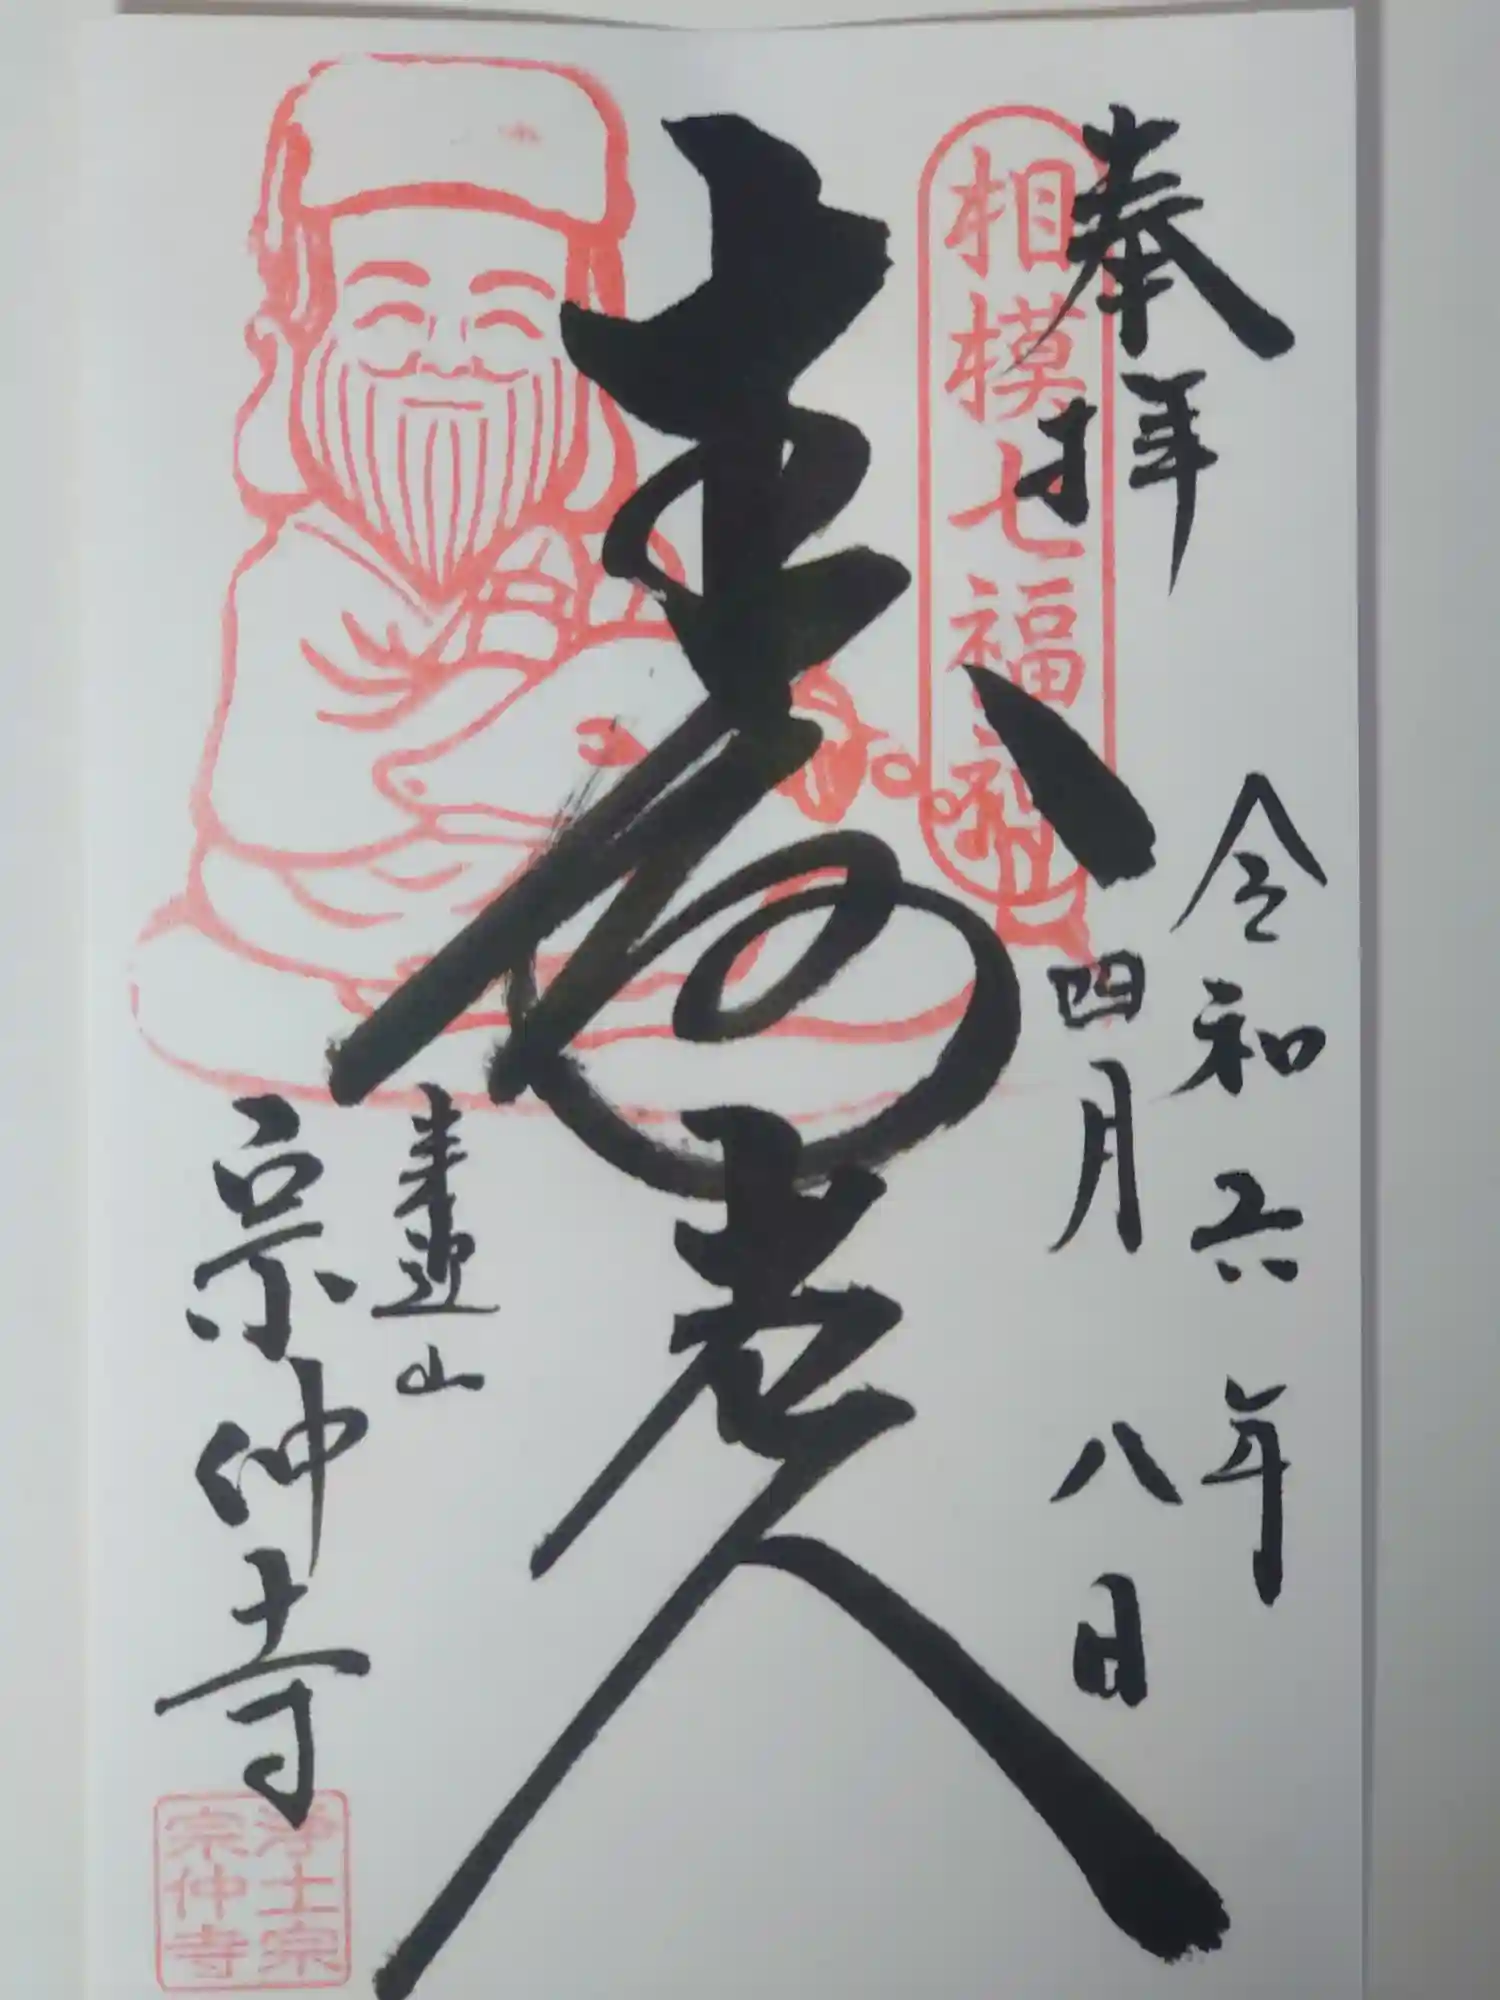 奉拝
令和六年
四月八日
相模七福神
寿老人
来迎山
宗仲寺
浄土宗
宗仲寺